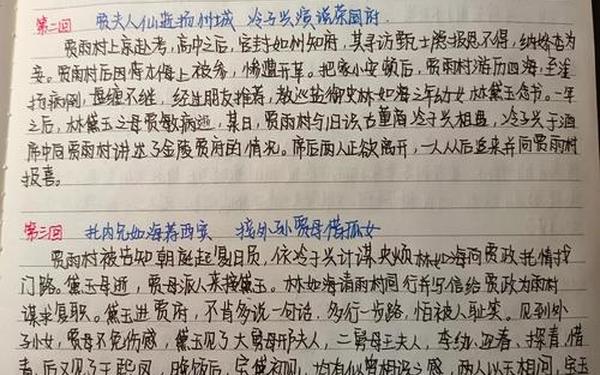 第二回 贾夫人仙逝扬州城 冷子兴演说荣国府
贾雨村上京赴考,高中之后,官封如州知府,其寻访甄士隐报恩不得,纳娇杏为
妾。贾雨村后因侍才侮上被参,惨遭开革。把家小安顿后,贾雨村游历四海,至淮
扬病倒,盘缠不继,经过朋友推荐,教巡盐御史林如海之幼女林黛玉念书。一年
之后,林黛玉之母贾敏病逝,某日,贾雨村与旧识古董商冷子兴相遇,冷子兴于酒
席中向贾雨村讲述了金陵贾府的情况。席后两人正欲离开,一人从后追来并向贾雨村
报喜。
第三回 托内兄如海荐西宾 接外孙贾母惜孤女
贾雨村被告知朝庭起复旧员,依冷子兴计谋央烦林如海向贾政托情找
门路。黛玉母逝,贾母派人来接黛玉。林如海请雨村同行并写信给贾政为雨村
谋求复职。黛玉进贾府,不肯多说一句话,多行一步路,怕被人耻笑。见到外
孙女,贾母不免伤感,黛玉见了大舅母邢夫人,二舅母王夫人,李纨、迎春、探春、惜
春,后又见了王熙凤,晚饭后,宝黛初见,均有似曾相识之感,两人以玉相问,宝玉